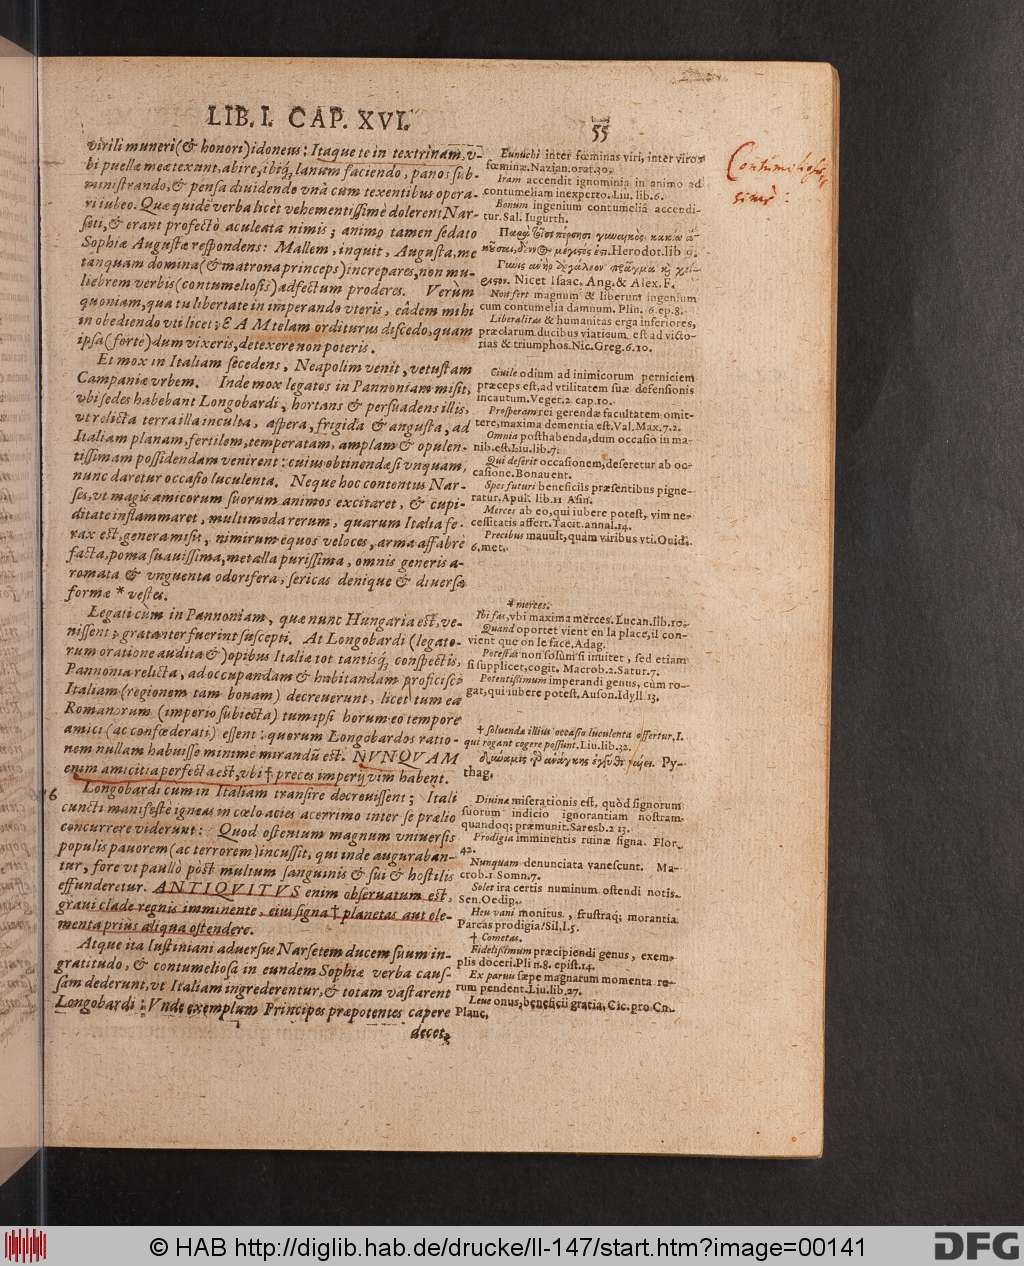 LIB. I. CAP. XVI. 55
virili muneri (& honori) idoneus: Itaque te in textrinam, v-
bi puellæ meæ texunt, abire, ibiq́; lanam faciendo, panos sub-
ministrando, & pensa diuidendo vnà cum texentibus opera-
ri iubeo. Quæ quidē verba licèt vehementissimè dolerent Nar-
seti, & erant profectò aculeata nimis; animo tamen sedato
Sophiæ Augustæ respondens: Mallem, inquit, Augusta, me
tanquam domina (& matrona princeps) increpares, non mu-
liebrem verbis (contumeliosis) adfectum proderes. Verùm
quoniam, qua tu libertate in imperando vteris, eâdem mihi
in obediendo vti licet; EAM telam orditurus discedo, quam
ipsa (forte) dum vixeris, detexere non poteris.
Et mox in Italiam secedens, Neapolim venit, vetustam
Campaniæ vrbem. Inde mox legatos in Pannoniam misit,
vbi sedes habebant Longobardi, hortans & persuadens illis,
vt relicta terra illa inculta, aspera, frigida & angusta, ad
Italiam planam, fertilem, temperatam, amplam & opulen-
tissimam possidendam venirent: cuius obtinendæ si vnquam,
nunc daretur occasio luculenta. Neque hoc contentus Nar-
ses, vt magis amicorum suorum animos excitaret, & cupi-
ditate inflammaret, multimoda rerum, quarum Italia fe-
rax est, genera misit, nimirum equos veloces, arma affabrè
facta, poma suauissima, metalla purissima, omnis generis a-
romata & vnguenta odorifera, sericas denique & diuersæ
formæ * vestes.
Legati cùm in Pannoniam, quæ nunc Hungaria est, ve-
nissent, gratanter fuerint suscepti. At Longobardi (legato-
rum oratione audita &) opibus Italiæ tot tantisq́; conspectis,
Pannonia relicta, ad occupandam & habitandam proficisci
Italiam (regionem tam bonam) decreuerunt, licet tum ea
Romanorum (imperio subiecta) tum ipsi horum eo tempore
amici (ac confœderati) essent: quorum Longobardos ratio-
nem nullam habuisse minime mirandū est. NVNQVAM
enim amicitia perfecta est, vbi † preces imperij vim habent.
16 Longobardi cum in Italiam transire decreuissent; Itali
cuncti manifeste igneas in cœlo acies acerrimo inter se prælio
concurrere viderunt: Quod ostentum magnum vniuersis
populis pauorem (ac terrorem) incussit, qui inde auguraban-
tur, fore vt paullò pòst multum sanguinis & sui & hostilis
effunderetur. ANTIQVITVS enim obseruatum est,
graui clade regnis imminente, eius signa † planetas aut ele-
menta priùs aliqua ostendere.
Atque ita Iustiniani aduersus Narsetem ducem suum in-
gratitudo, & contumeliosa in eundem Sophiæ verba caus-
sam dederunt, vt Italiam ingrederentur, & totam vastarent
Longobardi: Vnde exemplum Principes præpotentes capere
decet,
Eunuchi inter fœminas viri, inter viros
fœminæ. Nazian. orat. 30.
Iram accendit ignominia in animo ad
contumeliam inexperto. Liu. lib. 6.
Bonum ingenium contumeliâ accendi-
tur. Sal. Iugurth.
Herodot. lib 9.
Nicet Isaac. Ang. & Alex. F.
Non fert magnum & liberum ingenium
cum contumelia damnum. Plin. 6 ep. 8.
Liberalitas & humanitas erga inferiores,
præclarum ducibus viaticum est ad victo-
rias & triumphos. Nic. Greg. 6. 10.
Ciuile odium ad inimicorum perniciem
præceps est, ad vtilitatem suæ defensionis
incautum. Veger. 2 cap. 10.
Prosperam rei gerendæ facultatem omit-
tere, maxima dementia est. Val. Max. 7. 2.
Omnia posthabenda, dum occasio in ma-
nib. est. Liu. lib. 7.
Qui deserit occasionem, deseretur ab oc-
casione. Bonauent.
Spes futuri beneficiis præsentibus pigne-
ratur. Apul. lib. 11 Asin.
Merces ab eo, qui iubere potest, vim ne-
cessitatis affert. Tacit. annal. 14.
Precibus mauult, quàm viribus vti. Ouid.
6. met.
* merces.
Ibi fas, vbi maxima merces. Lucan. lib. 10.
Quand oportet vient en la place, il con-
vient que on le face. Adag.
Potestas non solùm si inuitet, sed etiam
si supplicet, cogit. Macrob. 2. Satur. 7.
Potentissimum imperandi genus, cùm ro-
gat, qui iubere potest. Auson. Idyll 13.
† soluenda illius occasio luculenta offertur, I.
qui rogant cogere possunt. Liu. lib. 32.
Py-
thag.
Diuinæ miserationis est, quòd signorum
suorum indicio ignorantiam nostram
quandoq; præmunit. Saresb. 2 13.
Prodigia imminentis ruinæ signa. Flor.
42.
Nunquam denunciata vanescunt. Ma-
crob. 1 Somn. 7.
Solet ira certis numinum ostendi notis.
Sen. Oedip.
Heu vani monitus, frustraq; morantia
Parcas prodigia! Sil. l. 5.
† Cometas.
Fidelissimum præcipiendi genus, exem-
plis doceri. Plin. 8. epist. 14.
Ex paruis sæpe magnarum momenta re-
rum pendent. Liu. lib. 27.
Leue onus, beneficii gratia. Cic. pro Cn.
Planc.
© HAB http://diglib.hab.de/drucke/ll-147/start.htm?image=00141
DFG